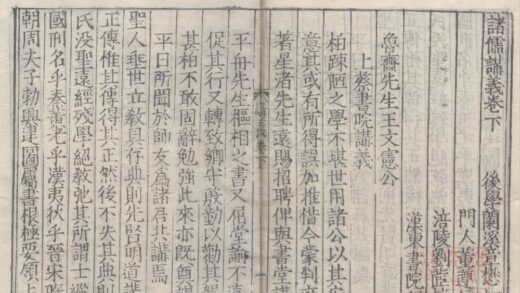 諸儒講義卷下
後學蘭溪高
門人董遵
涪陵劉茝
漢東書院
魯齋先生王文憲公
上蔡書院講義
柏疎陋之學不堪世用諸公以其
意其或有所得誤加推借今臺判
著星渚先生遠賜招聘俾與書堂
講義卷下
平舟先生樞相之書又俯堂諭不遠
促其行又轉致鄉牛殷勤以勸其
其柏不敢固辭勉強此來亦旣
平日所聞於師友為諸君共講焉
聖人垂世立教具行典則先賢明道
正傳惟其傳得其正然後不失其典則
氏没聖遠經殘學絕教弛其所謂士
國刑名乎秦黄老乎漢夷狄乎晉宋
朝周夫子勃興建圖屬書根極要領上